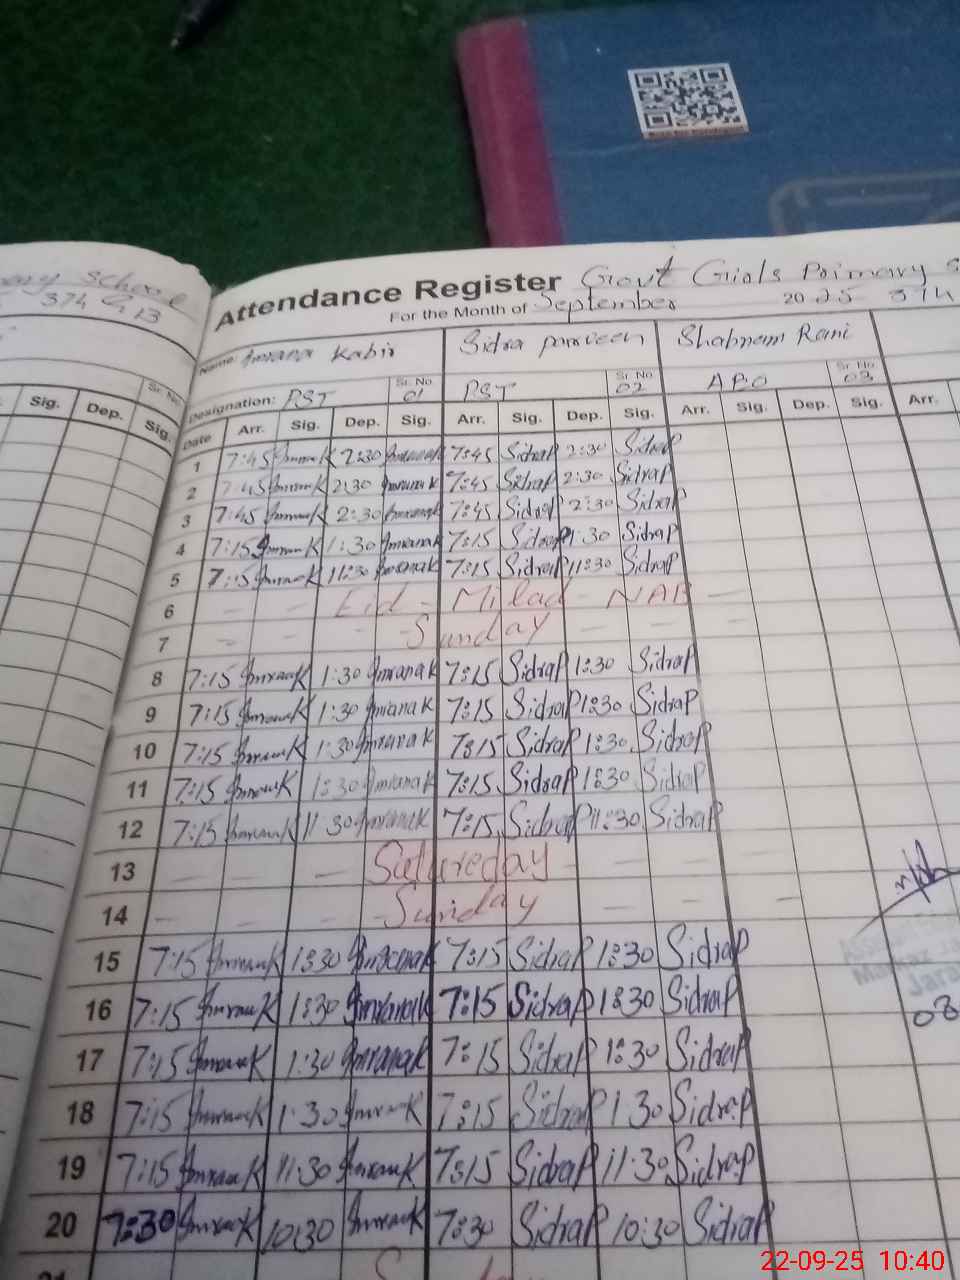 School
374 G 13
Attendance Register Govt Girals Poimary S
For the Month of September 2025 374
Name Imrana Kabir Sidra parveen Shabnem Rani
Designation: PST Sr. No. 01 PST Sr. No. 02 ABO Sr. No. 03
Sig. Dep. Sig. Sr. No.
Date Arr. Sig. Dep. Sig. Arr. Sig. Dep. Sig. Arr. Sig. Dep. Sig. Arr.
1 7:45 ImranaK 2:30 Imranak 7:45 SidraP 2:30 SidraP
2 7:45 ImranaK 2:30 Imranak 7:45 SidraP 2:30 SidraP
3 7:45 ImranaK 2:30 Imranak 7:45 SidraP 2:30 SidraP
4 7:15 ImranaK 1:30 Imranak 7:15 SidraP 1:30 SidraP
5 7:15 ImranaK 11:30 Imranak 7:15 SidraP 11:30 SidraP
6 - - Eid - Milad - NAB -
7 - - - Sunday - -
8 7:15 ImranaK 1:30 ImranaK 7:15 SidraP 1:30 SidraP
9 7:15 ImranaK 1:30 ImranaK 7:15 SidraP 1:30 SidraP
10 7:15 ImranaK 1:30 ImranaK 7:15 SidraP 1:30 SidraP
11 7:15 ImranaK 1:30 ImranaK 7:15 SidraP 1:30 SidraP
12 7:15 ImranaK 11:30 Imranak 7:15 SidraP 11:30 SidraP
13 - - - Satureday - - - -
14 - - - Sunday - - - -
15 7:15 ImranaK 1:30 Imranak 7:15 SidraP 1:30 SidraP
16 7:15 ImranaK 1:30 Imranak 7:15 SidraP 1:30 SidraP
17 7:15 ImranaK 1:30 Imranak 7:15 SidraP 1:30 SidraP
18 7:15 ImranaK 1:30 ImranaK 7:15 SidraP 1:30 SidraP
19 7:15 ImranaK 11:30 ImranaK 7:15 SidraP 11:30 SidraP
20 7:30 ImranaK 10:30 ImranaK 7:30 SidraP 10:30 SidraP
Markaz
08
22-09-25 10:40